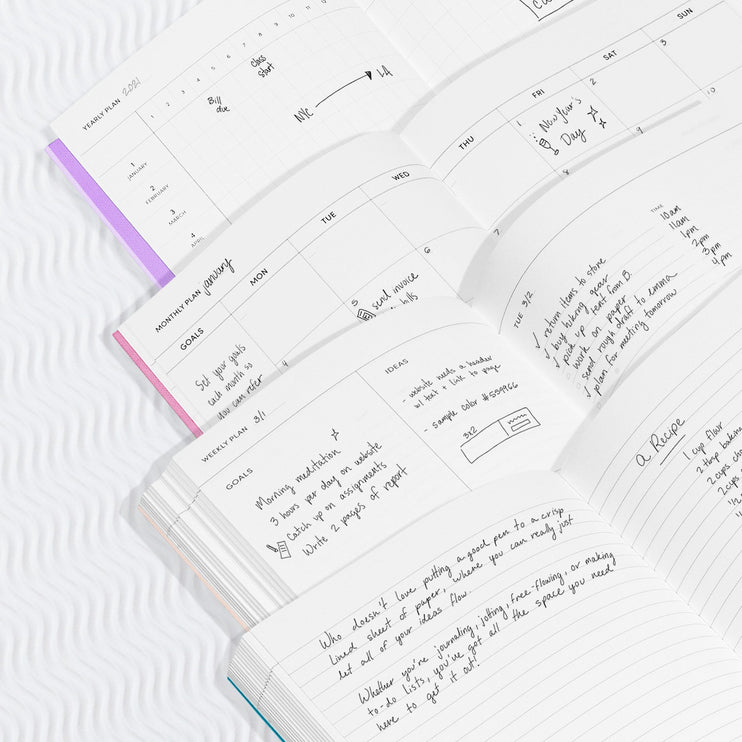 YEARLY PLAN 2021
1 2 3 4 5 6 7 8 9 10 11 12
1 JANUARY
2 FEBRUARY
3 MARCH
4 APRIL
Bill
due
Class
start
NYC
LA
MONTHLY PLAN january
GOALS
MON
TUE
WED
THU
FRI
SAT
SUN
Set your goals
each month so
you can refer
4
5
send invoice
bills
6
7
1
New Year's
Day
8
2
9
3
10
WEEKLY PLAN 3/1
GOALS
Morning meditation
3 hours per day on website
Catch up on assignments
Write 2 pages of report
IDEAS
- website needs a header
w/ text + link to page
- sample color #559966
TUE 3/2
return items to store
buy hiking gear
pick up tent from B.
work on paper
send rough draft to emma
plan for meeting tomorrow
TIME
10am
11am
1pm
2pm
3pm
4pm
Who doesn't love putting a good pen to a crisp
lined sheet of paper, where you can ready just
let all of your ideas flow.
Whether you're journaling, jotting, free-flowing, or making
to-do lists, you've got all the space you need
here to get it out!
a Recipe
1 cup flour
2 tbsp baking
2 cups
2 cups